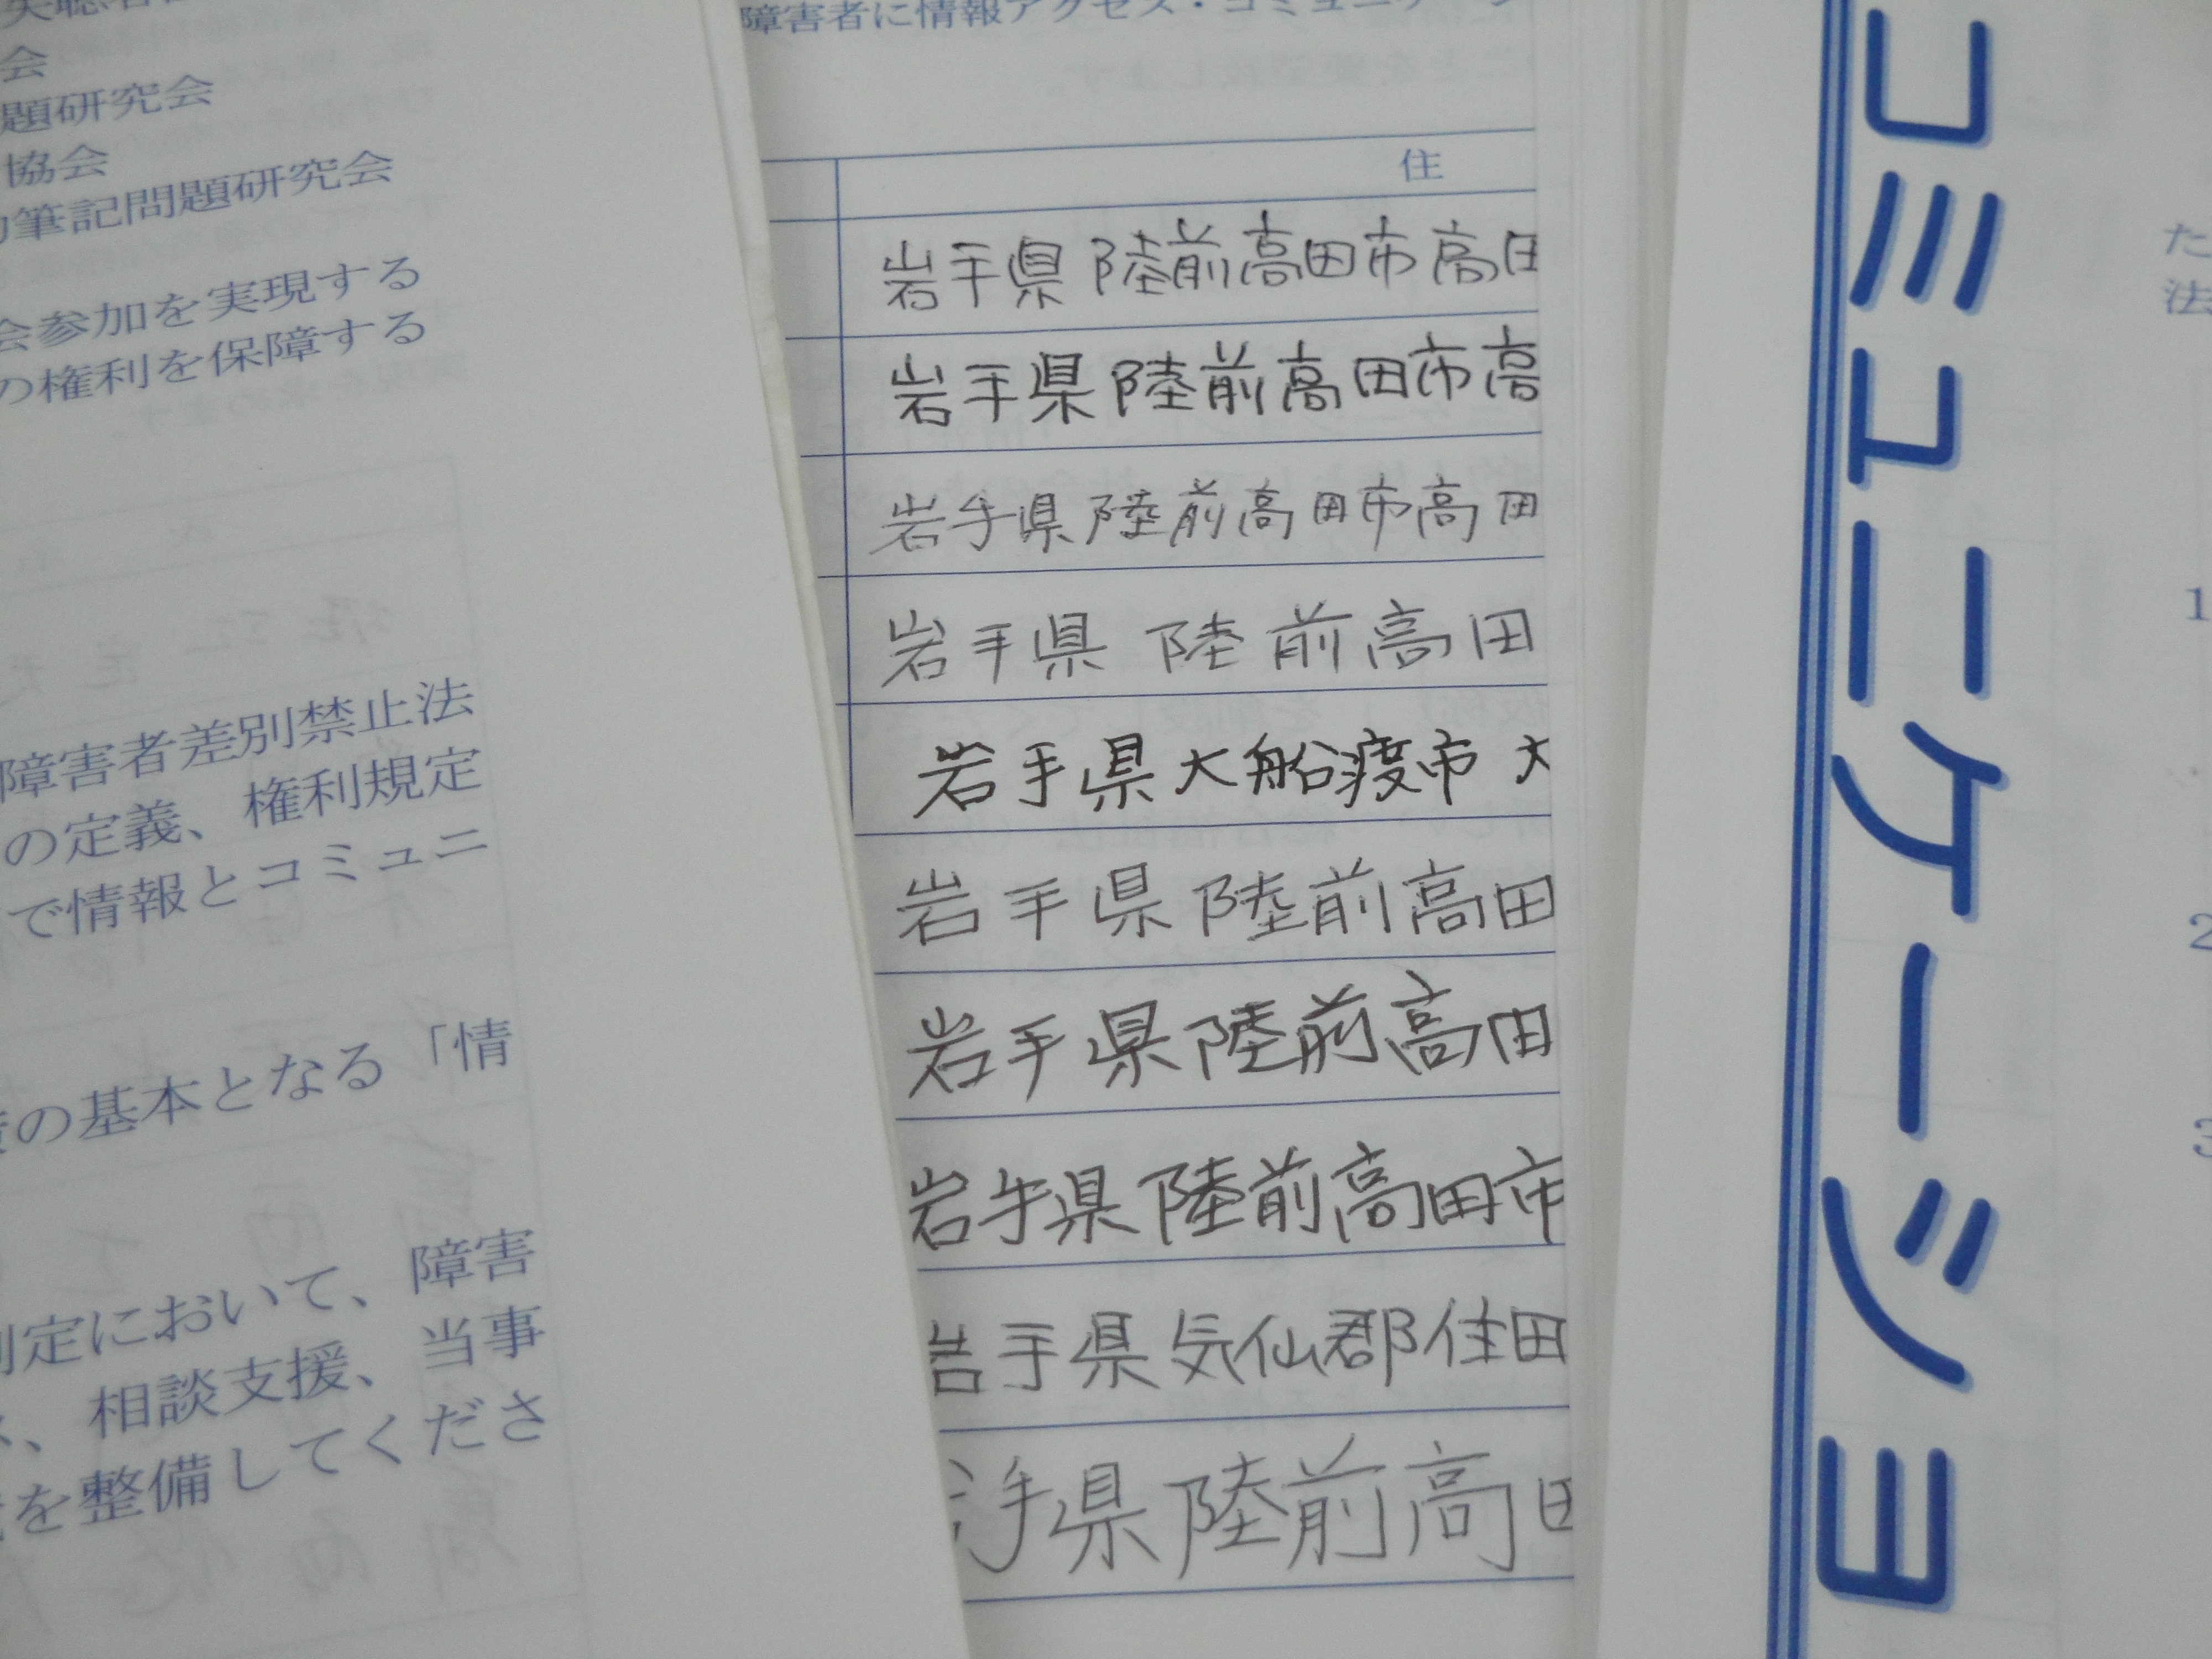 会
題研究会
協会
筆記問題研究会
会参加を実現する
の権利を保障する
障害者差別禁止法
の定義、権利規定
で情報とコミュニ
の基本となる「情
定において、障害
、相談支援、当事
を整備してくださ
障害者に情報アクセス・コミュニケーシ
住
岩手県陸前高田市高田
岩手県陸前高田市高
岩手県陸前高田市高田
岩手県 陸前高田
岩手県大船渡市 大
岩手県陸前高田
岩手県陸前高田
岩手県陸前高田市
岩手県気仙郡住田
手県陸前高田
コミュニケーショ
た
法
1
2
3